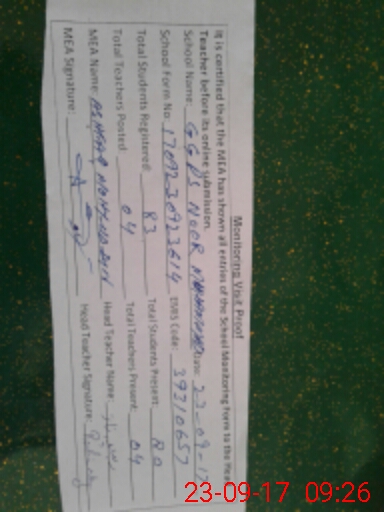 Monitoring Visit Proof
It is certified that the MEA has shown all entries of the School Monitoring Form to the Head
Teacher before its online submission.
School Name: GGPS NOOR Date: 23-09-17
School Form No: EMIS Code: 39310657
Total Students Registered: 83 Total Students Present: 80
Total Teachers Posted: 04 Total Teachers Present: 04
MEA Name: Head Teacher Name:
MEA Signature: Head Teacher Signature:
23-09-17 09:26